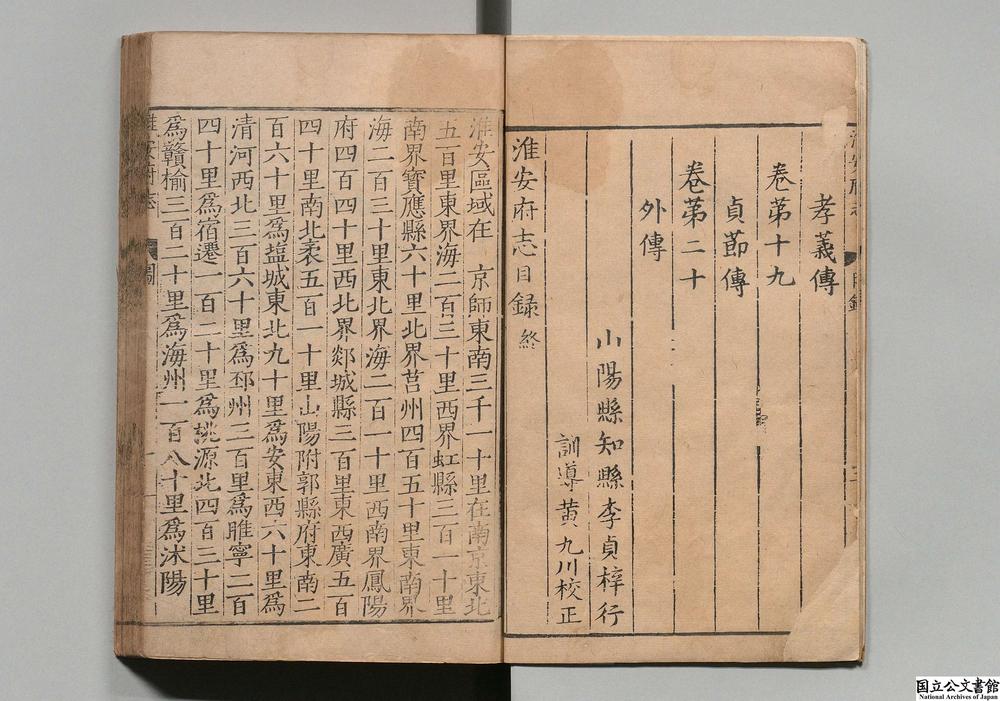 孝義傳
卷第十九
貞節傳
卷第二十
外傳
山陽縣知縣李貞梓行
訓導黃九川校正
淮安府志目録終
淮安區域在 京師東南三千一十里在南京東北
五百里東界海二百三十里西界虹縣三百一十里
南界寶應縣六十里北界莒州四百五十里東南界
海二百三十里東北界海二百一十里西南界鳳陽
府四百四十里西北界郯城縣三百里東西廣五百
四十里南北袤五百一十里山陽附郭縣府東南二
百六十里爲塩城東北九十里爲安東西六十里爲
清河西北三百六十里爲邳州三百里爲睢寧二百
四十里爲宿遷一百二十里爲桃源北四百三十里
爲贛榆三百二十里爲海州一百八十里爲沭陽
淮安府志 圖
国立公文書館
National Archives of Japan